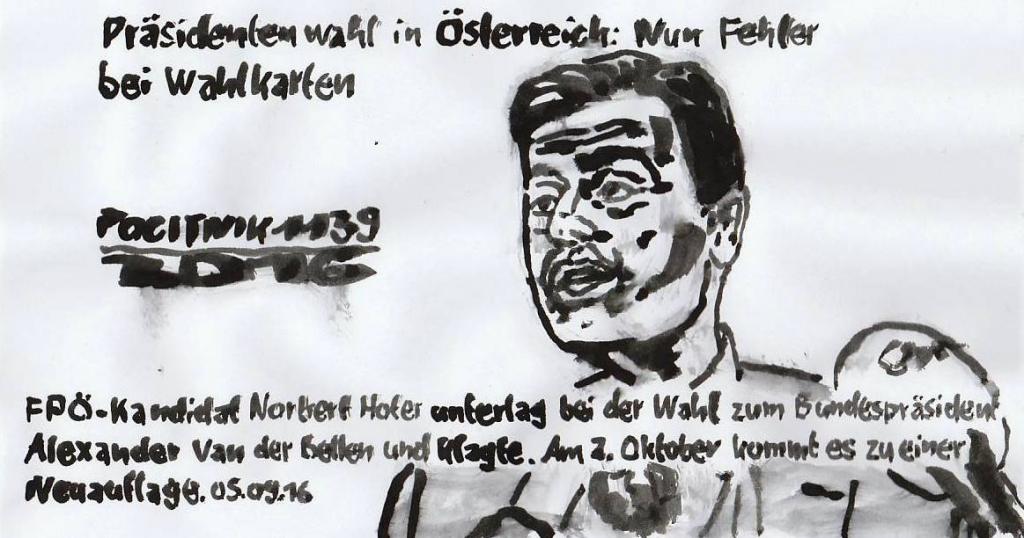 Präsidentenwahl in Österreich: Nun Fehler
bei Wahlkarten
FPÖ-Kandidat Norbert Hofer unterlag bei der Wahl zum Bundespräsident
Alexander Van der Bellen und klagte. Am 2. Oktober kommt es zu einer
Neuauflage. 05.09.16